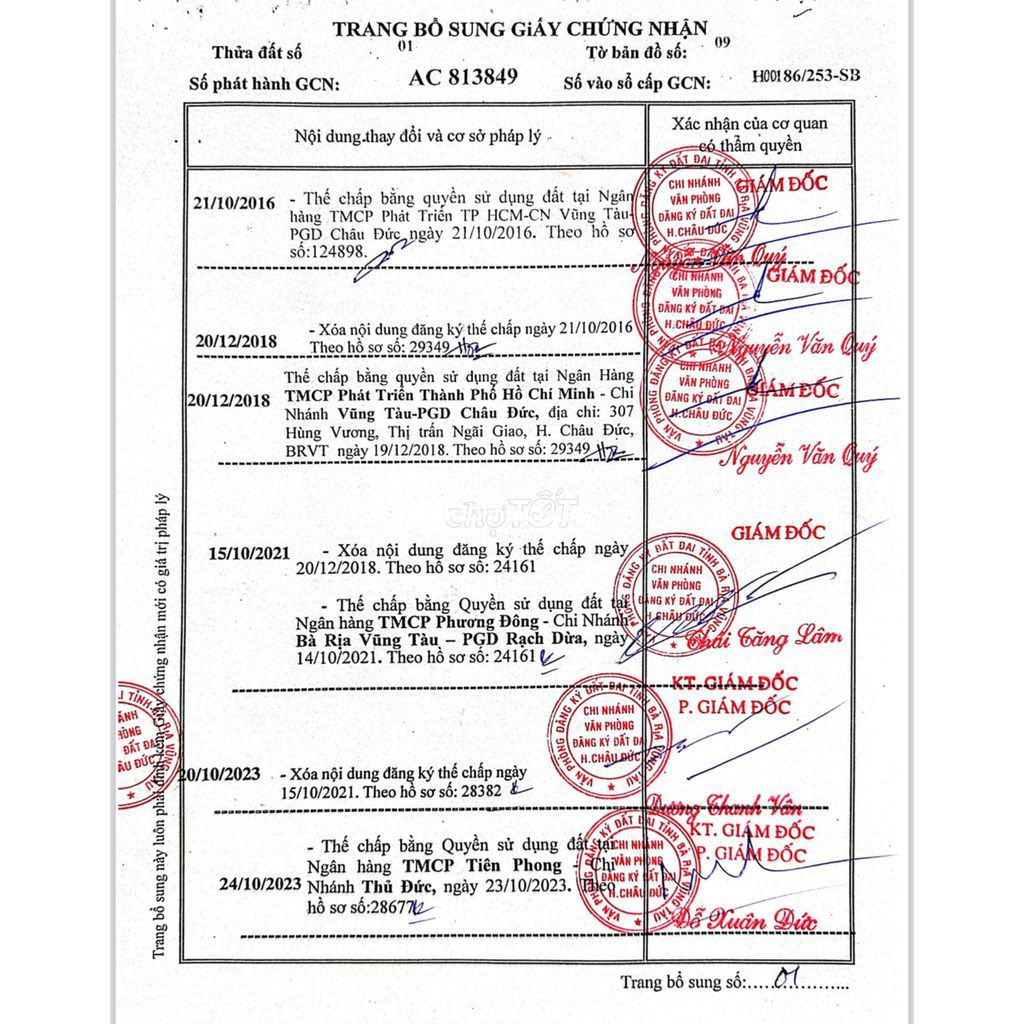 TRANG BỔ SUNG GIẤY CHỨNG NHẬN
Thửa đất số 01 Tờ bản đồ số: 09
Số phát hành GCN: AC 813849 Số vào sổ cấp GCN: H00186/253-SB
Nội dung thay đổi và cơ sở pháp lý
Xác nhận của cơ quan
có thẩm quyền
21/10/2016
- Thế chấp bằng quyền sử dụng đất tại Ngân
hàng TMCP Phát Triển TP HCM-CN Vũng Tàu-
PGD Châu Đức ngày 21/10/2016. Theo hồ sơ
số:124898.
GIÁM ĐỐC
Văn Quý
VĂN PHÒNG ĐĂNG KÝ ĐẤT ĐAI TỈNH BÀ RỊA VŨNG TÀU
CHI NHÁNH
VĂN PHÒNG
ĐĂNG KÝ ĐẤT ĐAI
H.CHÂU ĐỨC
20/12/2018
- Xóa nội dung đăng ký thế chấp ngày 21/10/2016
Theo hồ sơ số: 29349
GIÁM ĐỐC
Nguyễn Văn Quý
CHI NHÁNH
VĂN PHÒNG
ĐĂNG KÝ ĐẤT ĐAI
H.CHÂU ĐỨC
20/12/2018
Thế chấp bằng quyền sử dụng đất tại Ngân Hàng
TMCP Phát Triển Thành Phố Hồ Chí Minh - Chi
Nhánh Vũng Tàu-PGD Châu Đức, địa chỉ: 307
Hùng Vương, Thị trấn Ngãi Giao, H. Châu Đức,
BRVT ngày 19/12/2018. Theo hồ sơ số: 29349
GIÁM ĐỐC
Nguyễn Văn Quý
VĂN PHÒNG ĐĂNG KÝ ĐẤT ĐAI TỈNH BÀ RỊA VŨNG TÀU
CHI NHÁNH
VĂN PHÒNG
ĐĂNG KÝ ĐẤT ĐAI
H.CHÂU ĐỨC
chợTỐT
15/10/2021
- Xóa nội dung đăng ký thế chấp ngày
20/12/2018. Theo hồ sơ số: 24161
- Thế chấp bằng Quyền sử dụng đất tại
Ngân hàng TMCP Phương Đông - Chi Nhánh
Bà Rịa Vũng Tàu – PGD Rạch Dừa, ngày
14/10/2021. Theo hồ sơ số: 24161
GIÁM ĐỐC
Thái Tăng Lâm
VĂN PHÒNG ĐĂNG KÝ ĐẤT ĐAI TỈNH BÀ RỊA VŨNG TÀU
CHI NHÁNH
VĂN PHÒNG
ĐĂNG KÝ ĐẤT ĐAI
H.CHÂU ĐỨC
20/10/2023
- Xóa nội dung đăng ký thế chấp ngày
15/10/2021. Theo hồ sơ số: 28382
KT. GIÁM ĐỐC
P. GIÁM ĐỐC
Dương Thanh Vân
VĂN PHÒNG ĐĂNG KÝ ĐẤT ĐAI TỈNH BÀ RỊA VŨNG TÀU
CHI NHÁNH
VĂN PHÒNG
ĐĂNG KÝ ĐẤT ĐAI
H.CHÂU ĐỨC
24/10/2023
- Thế chấp bằng Quyền sử dụng đất tại
Ngân hàng TMCP Tiên Phong - Chi
Nhánh Thủ Đức, ngày 23/10/2023. Theo
hồ sơ số:28677
KT. GIÁM ĐỐC
P. GIÁM ĐỐC
Đỗ Xuân Đức
VĂN PHÒNG ĐĂNG KÝ ĐẤT ĐAI TỈNH BÀ RỊA VŨNG TÀU
CHI NHÁNH
VĂN PHÒNG
ĐĂNG KÝ ĐẤT ĐAI
H.CHÂU ĐỨC
Trang bổ sung này luôn phải đính kèm Giấy chứng nhận mới có giá trị pháp lý
Trang bổ sung số:.....01........